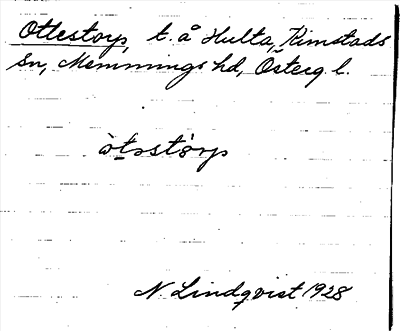 Ottestorp, t. å Hulta, Kimstads
sn, Memmings hd, Österg. l.
òtəstòrp
N. Lindqvist 1928